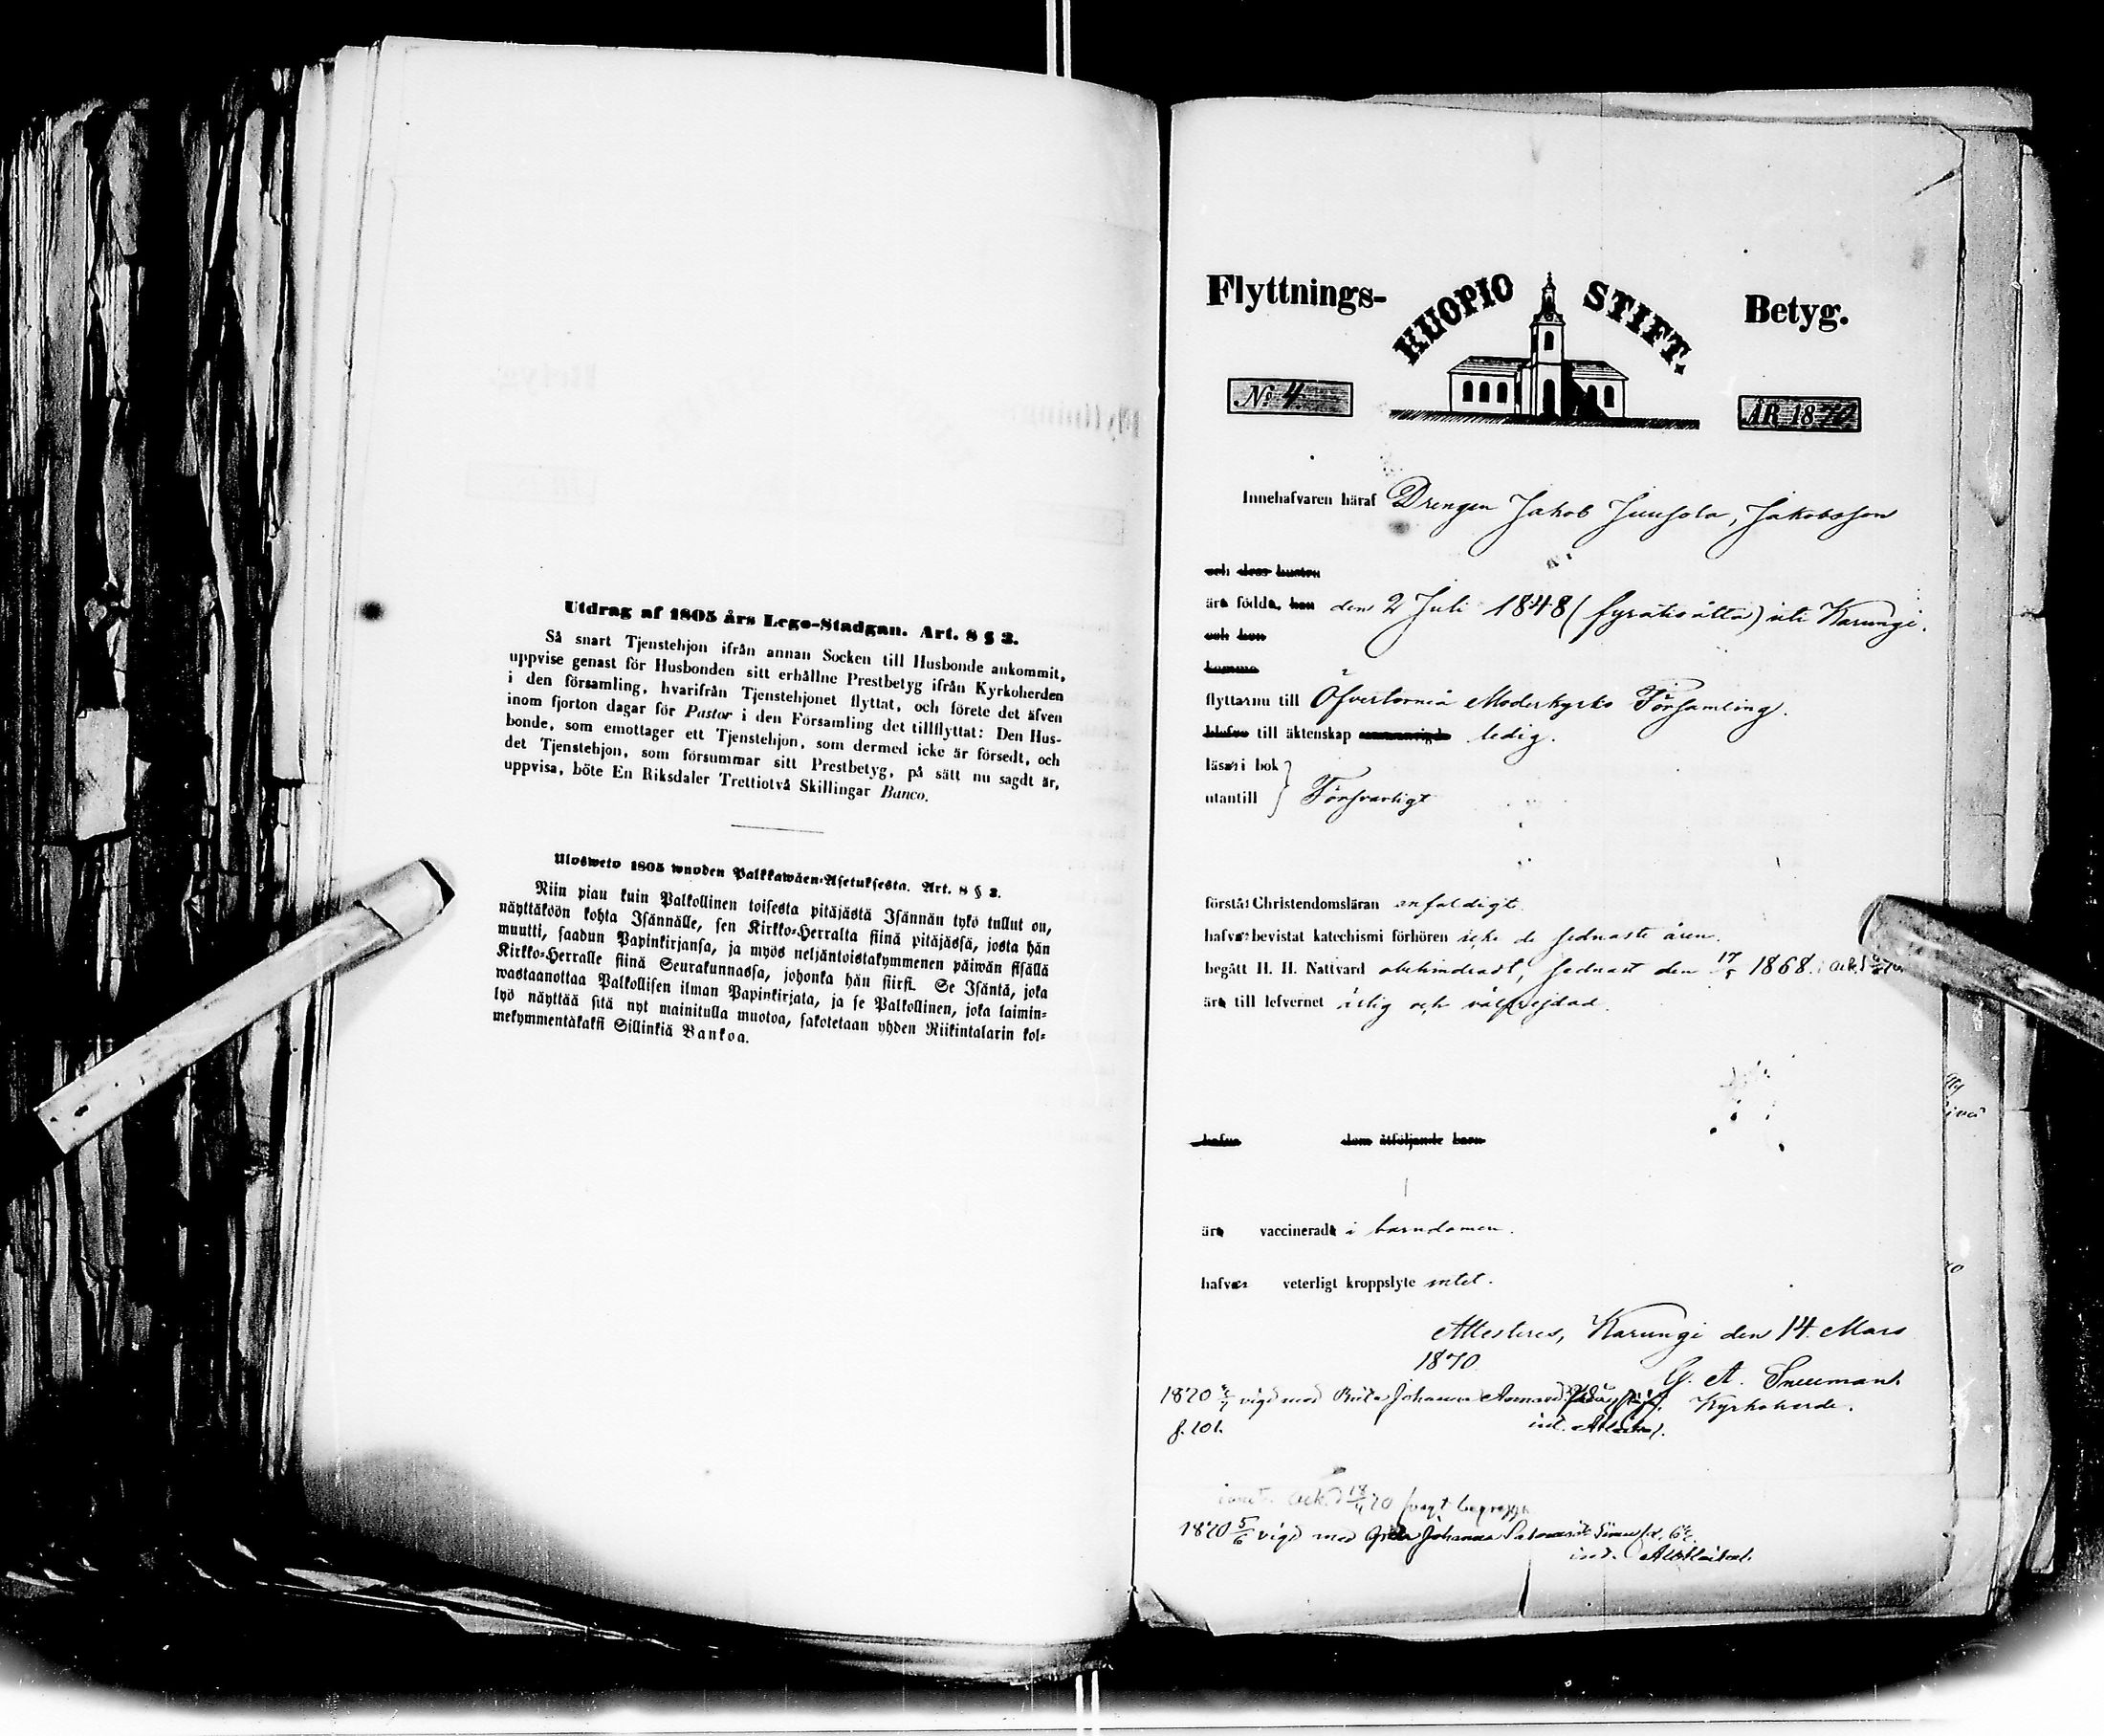 Utdrag af 1805 års Lego-Stadgan. Art. 8 § 3.
Så snart Tjenstehjon ifrån annan Socken till Husbonde ankommit,
uppvise genast för Husbonden sitt erhållne Prestbetyg ifrån Kyrkoherden
i den församling, hvarifrån Tjenstehjonet flyttat, och förete det äfven
inom fjorton dagar för Pastor i den Församling det tillflyttat: Den Hus-
bonde, som emottager ett Tjenstehjon, som dermed icke är försedt, och
det Tjenstehjon, som försummar sitt Prestbetyg, på sätt nu sagdt är,
uppvisa, böte En Riksdaler Trettiotvå Skillingar Banco.
Ulosweto 1805 wuoden Palkkawäen-Asetuksesta. Art. 8 § 3.
Niin piau kuin Palkollinen toisesta pitäjästä Isännän tykö tullut on,
näyttäköön kohta Isännälle, sen Kirkko-Herralta siinä pitäjässä, josta hän
muutti, saadun Papinkirjansa, ja myös neljäntoistakymmenen päiwän sisällä
Kirkko-Herralle siinä Seurakunnassa, johonka hän siirsi. Se Isäntä, joka
wastaanottaa Palkollisen ilman Papinkirjata, ja se Palkollinen, joka laimin-
lyö näyttää sitä nyt mainitulla muotoa, sakotetaan yhden Riikintalarin kol-
mekymmentäkaksi Sillinkiä Bankoa.
Flyttnings- KUOPIO STIFT. Betyg.
No 4 ÅR 1870
Innehafvaren häraf Drengen Jakob Juusola, Jakobsson
och dess hustru
äro födda, han den 2 Juli 1848 (fyratioåtta) uti Karungi.
och hon
komma
flyttarnu till Öfvertorneå Moderkyrko Församling.
till äktenskap ledig.
läser i bok
utantill } Försvarligt
förstår Christendomsläran enfaldigt.
hafver bevistat katechismi förhören icke de sednaste åren.
begått H. H. Nattvard obehindradt, sednast den 17/5 1868.
är till lefvernet ärlig och välfrejdad.
hafva dem åtföljande barn
är vaccinerad i barndomen.
hafver veterligt kroppslyte intet.
Attesteres, Karungi den 14 Mars
1870.
G. A. Snellman
Kyrkoherde.
1870 vigd med Brita Johanna
f. 101.
1870 5/6 vigd med Greta Johanna